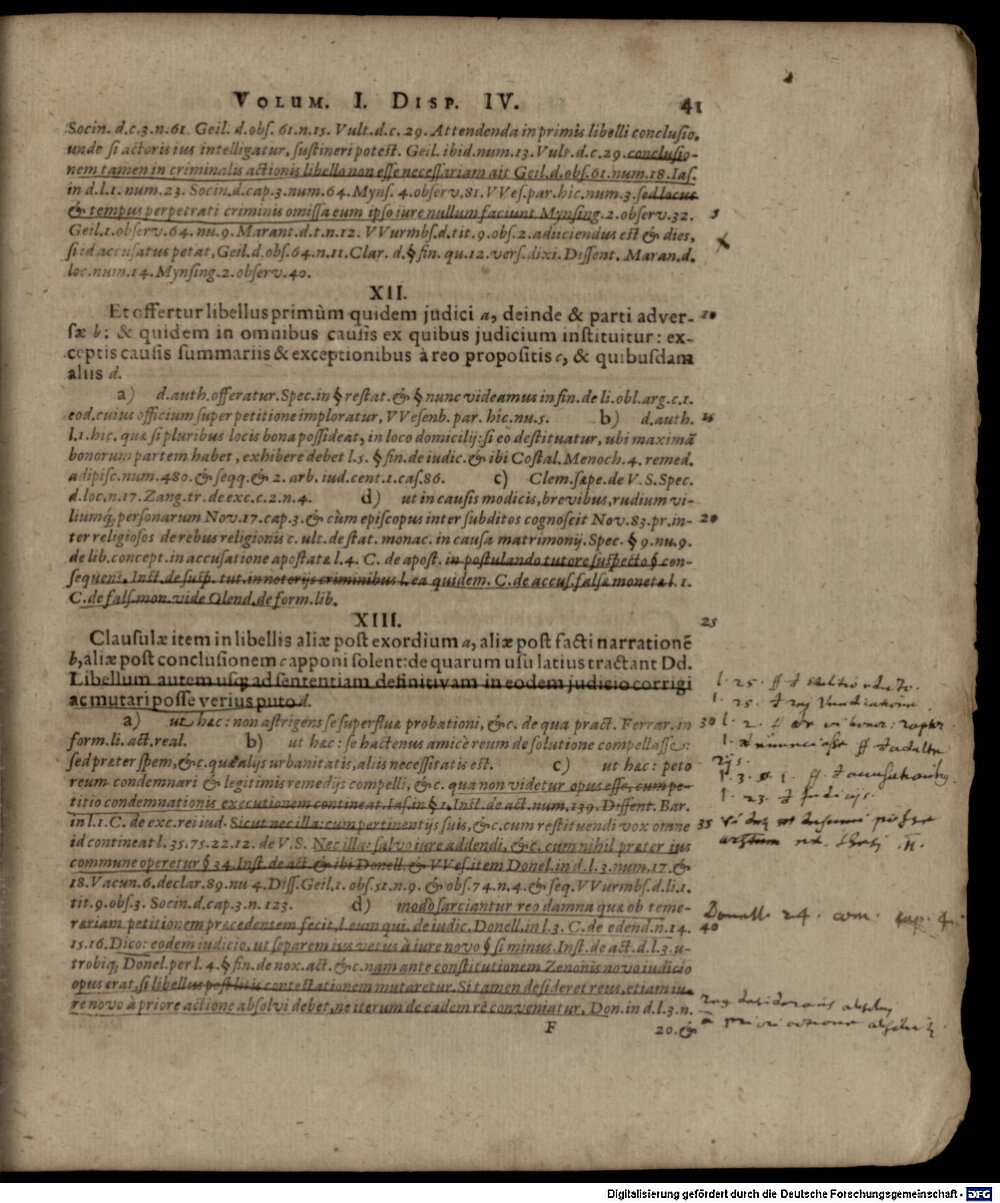 VOLUM. I. DISP. IV. 41
Socin. d.c.3.n.61. Geil. d.obs. 61.n.15. Vult.d.c.29. Attendenda in primis libelli conclusio,
unde si actoris ius intelligatur, sustineri potest. Geil. ibid.num.13. Vult.d.c.29. conclusio-
nem tamen in criminalis actionis libello non esse necessariam ait Geil.d.obs.61.num.18. Ias.
in d.l.1.num.23. Socin.d.cap.3.num.64. Myns. 4.observ.81. VVes.par.hic.num.3. sed locus
& tempus perpetrati criminis omissa eum ipso iure nullum faciunt Mynsing. 2.observ.32. 5
Geil.1.observ.64.nu.9. Marant.d.t.n.12. VVurmbs.d.tit.9.obs.2. adiiciendus est & dies,
si id accusatus petat, Geil.d.obs.64.n.11. Clar. d.§ fin. qu.12. vers. dixi. Dissent. Maran.d.
loc.num.14. Mynsing.2.observ.40.
XII.
Et offertur libellus primùm quidem judici a, deinde & parti adver- 10
sæ b: & quidem in omnibus causis ex quibus judicium instituitur: ex-
ceptis causis summariis & exceptionibus à reo propositis c, & quibusdam
aliis d.
a) d.auth.offeratur. Spec.in § restat. & § nunc videamus in fin. de li. obl.arg.c.1.
eod.cuius officium super petitione imploratur, VVesenb. par. hic.nu.5. b) d.auth. 15
l.1.hic. quæ si pluribus locis bona possideat, in loco domicilij: si eo destituatur, ubi maximā
bonorum partem habet, exhibere debet l.5. § fin. de iudic. & ibi Costal. Menoch.4. remed.
adipisc.num.480. & seqq. & 2. arb. iud.cent.1.cas.86. c) Clem.sæpe. de V.S. Spec.
d.loc.n.17. Zang.tr.de exc.c.2.n.4. d) ut in causis modicis, brevibus, rudium vi-
liumq́; personarum Nov.17.cap.3. & cùm episcopus inter subditos cognoscit Nov.83.pr.in- 20
ter religiosos de rebus religionis c. ult. de stat. monac. in causa matrimonij. Spec. § 9.nu.9.
de lib.concept. in accusatione apostatæ l.4. C. de apost. in postulando tutore suspecto § con-
sequens. Inst. de susp. tut. in notorijs criminibus l. ea quidem. C. de accus. falsæ monetæ l.1.
C. de fals. mon. vide Olend. de form. lib.
XIII. 25
Clausulæ item in libellis aliæ post exordium a, aliæ post facti narrationē
b, aliæ post conclusionem c apponi solent: de quarum usu latius tractant Dd.
Libellum autem usq; ad sententiam definitivam in eodem judicio corrigi
ac mutari posse verius puto d.
a) ut hæc: non astrigens se superfluæ probationi, &c. de qua pract. Ferrar. in 30
form.li. act.real. b) ut hæc: se hactenus amicè reum de solutione compellasse:
sed præter spem, &c. quæ alijs urbanitatis, aliis necessitatis est. c) ut hæc: peto
reum condemnari & legitimis remedijs compelli, &c. quanon videtur opus esse, cum pe-
titio condemnationis executionem contineat. Ias. in § 1. Inst. de act. num. 139. Dissent. Bar.
in l.1. C. de exc. rei iud. Sicut nec illa: cum pertinentijs suis, &c. cum restituendi vox omne 35
id contineat l.35.75.22.12. de V.S. Nec illa: salvo iure addendi, &c. cum nihil præter ius
commune operetur § 34. Inst. de act. & ibi Donell. & VVes. item Donel. in d.l.3.num.17. &
18. Vacun.6.declar.89.nu 4. Diss. Geil.1.obs.51.n.9. & obs.74.n.4. & seq. VVurmbs.d.li.1.
tit.9.obs.3. Socin.d.cap.3.n.123. d) modò sarciantur reo damna quæ ob teme-
rariam petitionem præcedentem fecit, l. eum qui. de iudic. Donell. in l.3. C. de edend.n.14. 40
15.16. Dico: eodem iudicio, ut separem iva verius à iure novo § si minus. Inst. de act. d.l.3.u-
trobiq; Donel. per l.4. § fin. de nox. act. &c. nam ante constitutionem Zenonis novo iudicio
opus erat, si libellus post litis contestationem mutaretur. Si tamen desideret reus, etiam iu-
re novo à priore actione absolvi debet, ne iterum de eadem rē conveniatur, Don. in d.l.3.n.
F 20. &
l. 25. ff
l. 25.
l. 2. ff
l.
l. 3. ff
l. 23.
Donell. 24. com. cap. 4.
Digitalisierung gefördert durch die Deutsche Forschungsgemeinschaft - DFG